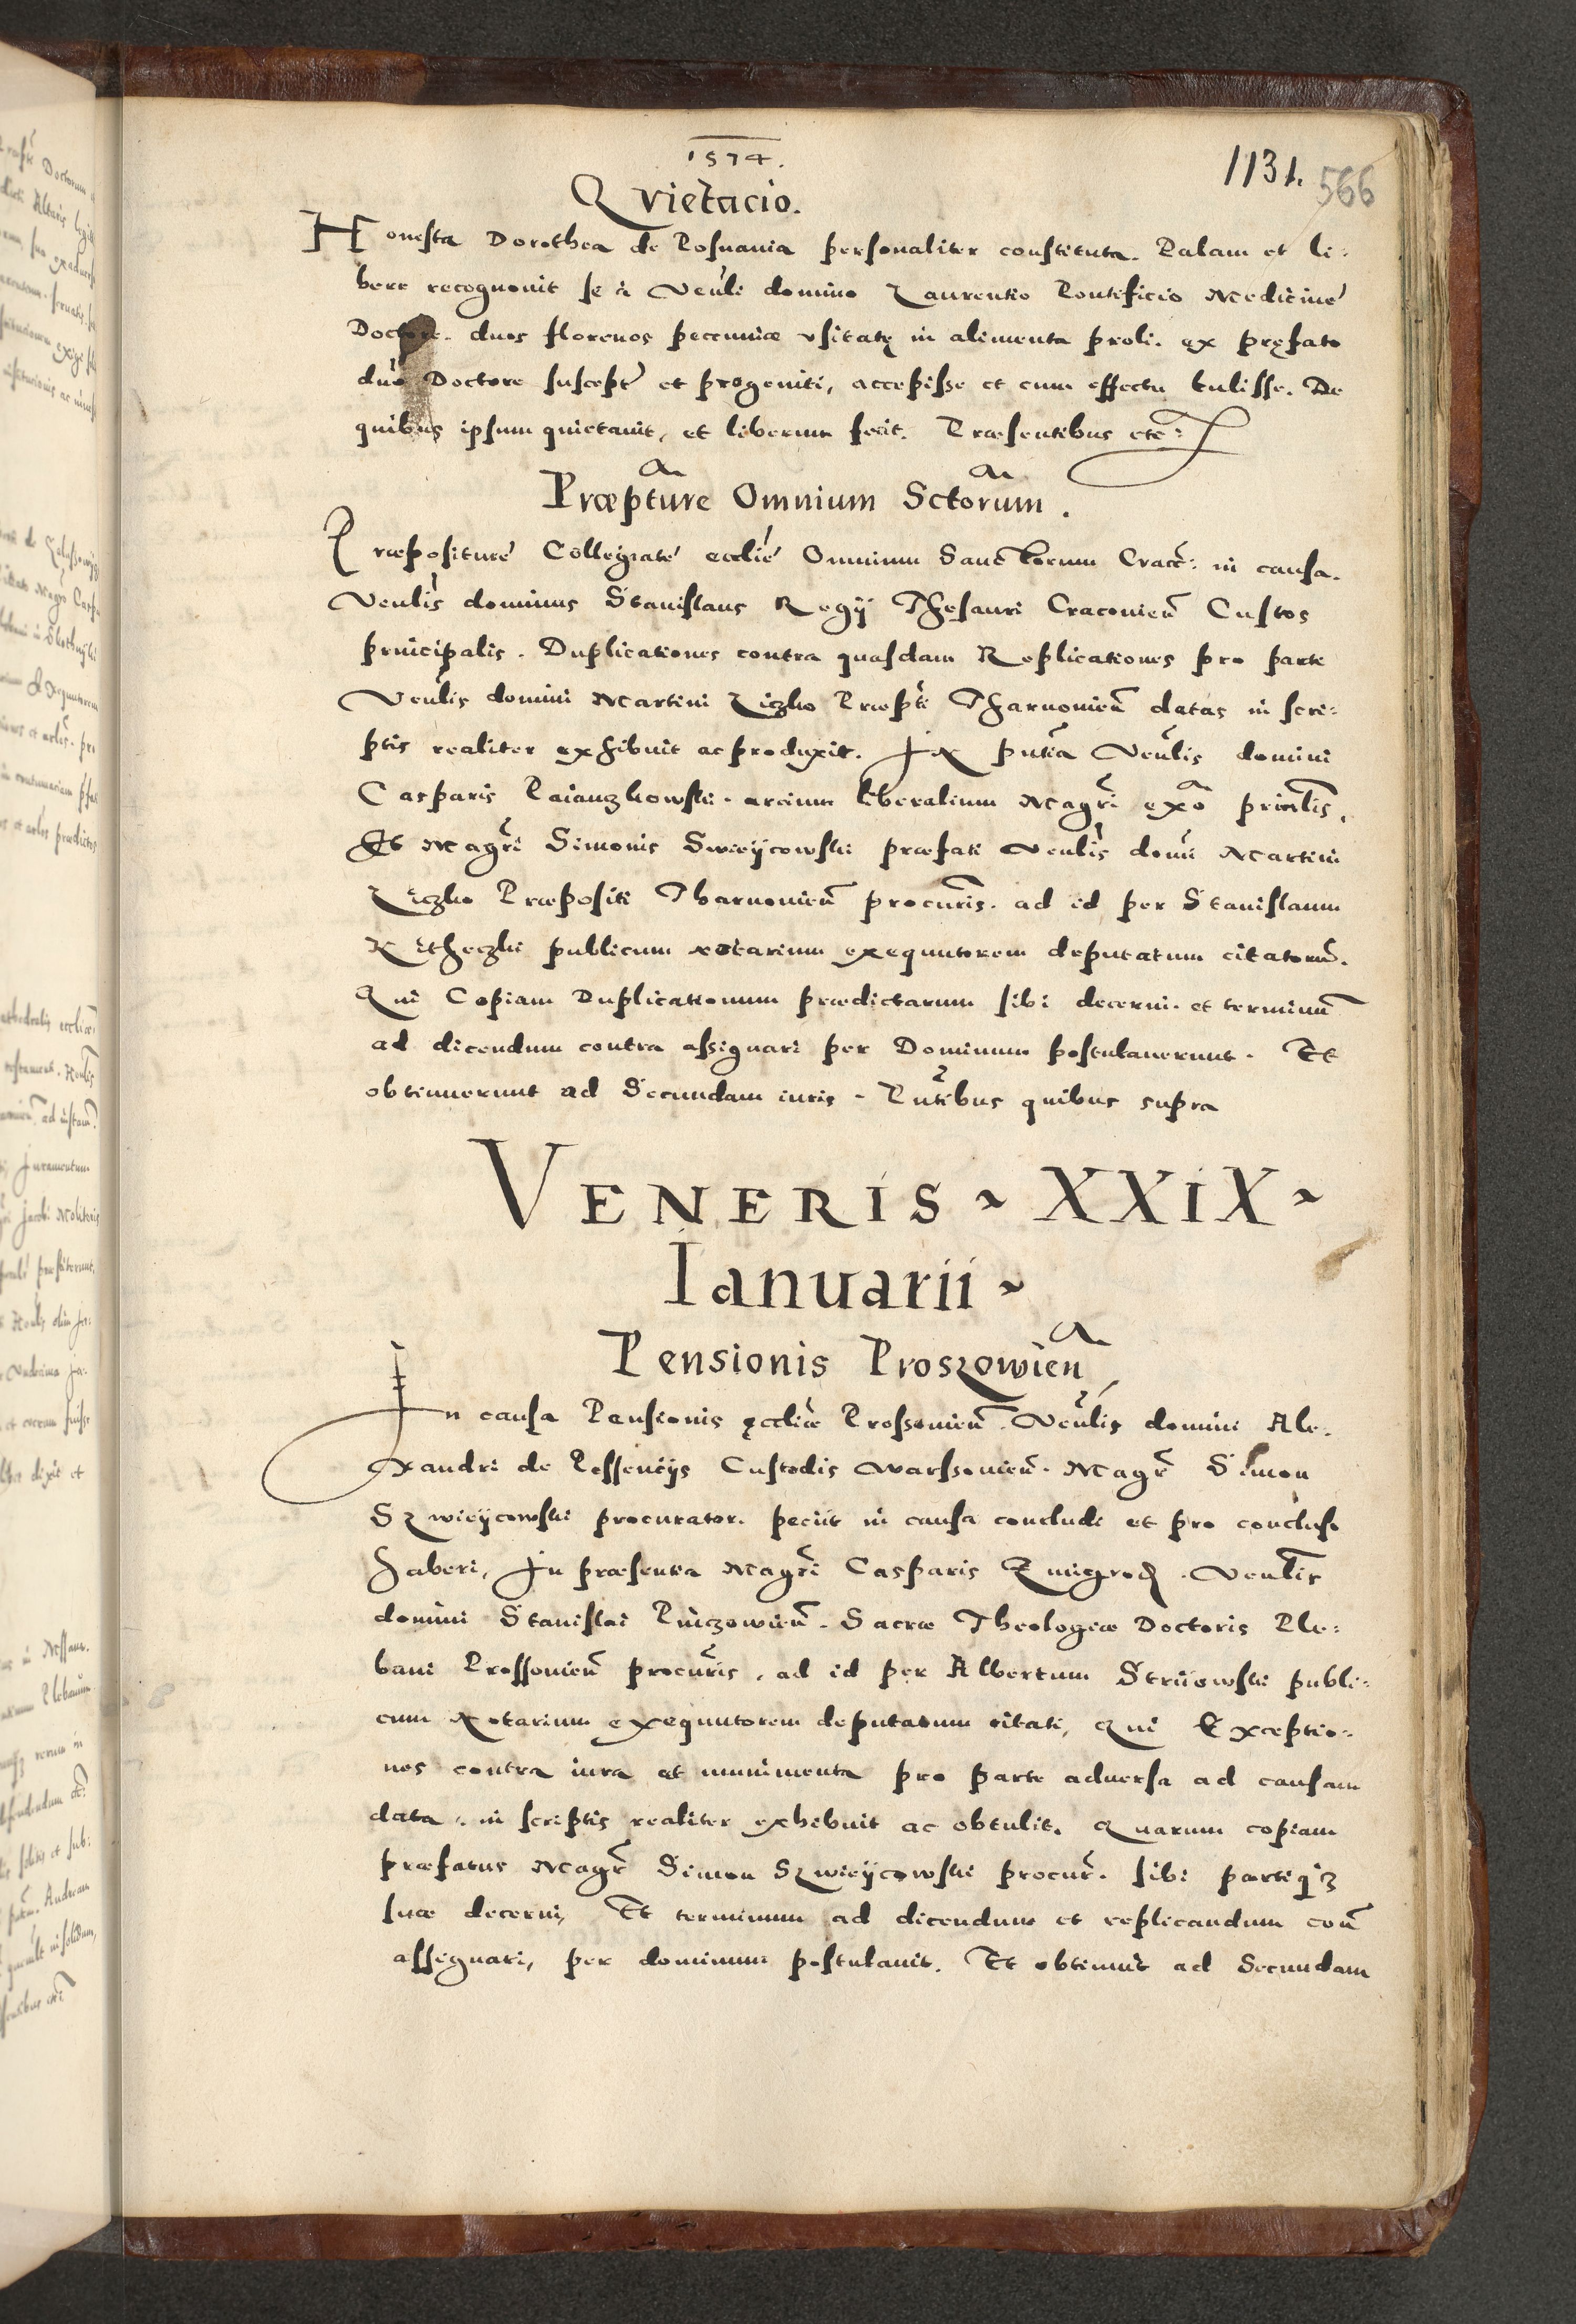 1574.
1131. 566
Quietacio.
Honesta Dorothea de Posnania personaliter constituta. Palam et li:
bere recognouit se à Venli domino Laurentio Pontificio Medicine
Doctore. duos florenos pecuniæ vsitatę in alimenta proli. ex pręfato
dno Doctore suscept et progeniti, accepisse et cum effectu tulisse. De
quibus ipsum quietauit, et liberum fecit. Præsentibus etc:
Præpture Omnium Sctorum.
Præpositure Collegiate ecclie Omnium Sanctorum Cracc: in causa.
Venlis dominus Stanislaus Regij Thesauri Cracouien Custos
principalis. Duplicationes contra quasdam Replicationes pro parte
Venlis domini Martini Liczko Præpti Tharnouien datas in scri:
ptis realiter exhibuit ac produxit. In pntia Venlis domini
Casparis Paianzkowski. arcium liberalium Magri exo prinlis.
Et Magri Simonis Swieijcowski præfati Venlis domi Martini
Liczko Præpositi Tharnouien procuris. ad id per Stanislaum
Retheczki publicum notarium exequutorem deputatum citatorum.
Qui Copiam Duplicationum prædictarum sibi decerni. et terminum
ad dicendum contra assignari per Dominum postulauerunt. Et
obtinuerunt ad Secundam iuris. Pntibus quibus supra
VENERIS XXIX
Ianuarii
Pensionis Proszowien
In causa Pensionis ęccliæ Prossouien. Venlis domini Ale:
xandri de Pessencijs Custodis Warssouien. Magr Simon
Szwieijcowski procurator. peciit in causa concludi et pro concluso
haberi, In præsentia Magri Casparis Zmigrod. Venlis
domini Stanislai Pinczowien. Sacræ Theologiæ Doctoris Ple:
bani Prossouien procuris, ad id per Albertum Strijowski publi:
cum Notarium exequutorem deputatum citati, qui Exceptio:
nes contra iura et munimenta pro parte aduersa ad causam
data. in scriptis realiter exhibuit ac obtulit. Quarum copiam
præfatus Magr Simon Szwieijcowski procur. sibi partiqз
suæ decerni, Et terminum ad dicendum et replicandum con
assignari, per dominum postulauit. Et obtinuit ad Secundam